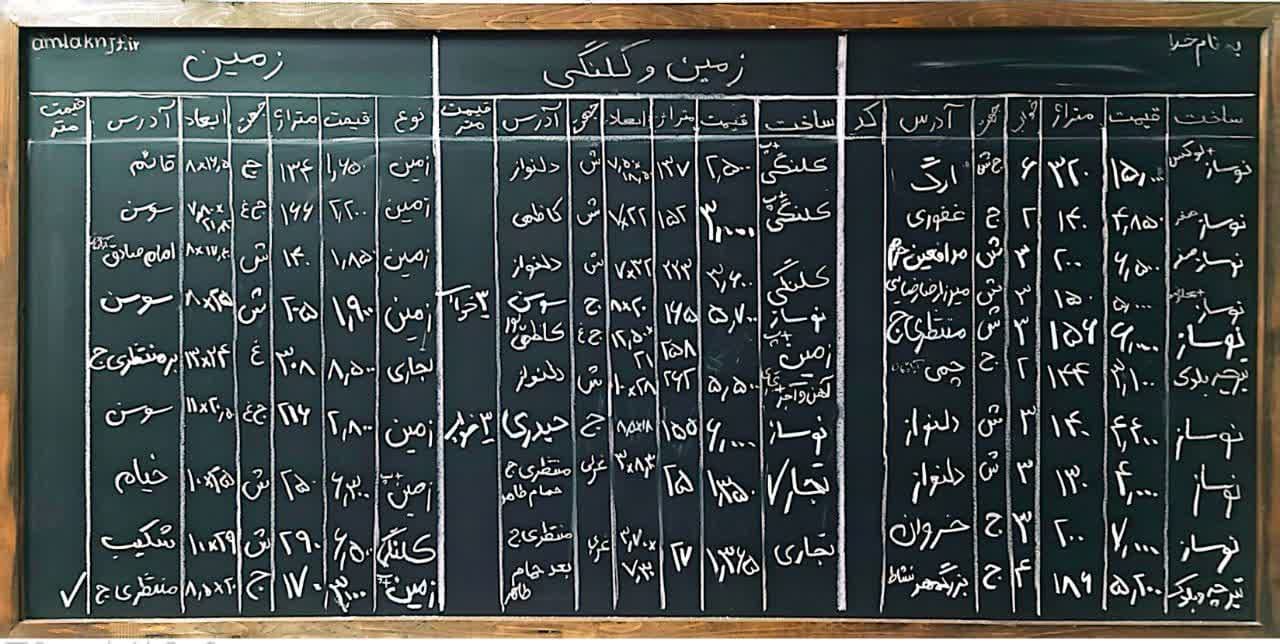 به نام خدا
ساخت قیمت متراژ خواب جهت آدرس کد
نوساز+لوکس ۱۵,۰۰۰ ۳۲۰ ۶ ج ش ارگ
نوساز صفر ۴,۸۵۰ ۱۴۰ ۲ ج غفوری
نوساز صفر ۶,۵۰۰ ۲۰۰ ۳ ش مدافعین حرم
نوساز ۵,۰۰۰ ۱۵۰ ۳ ش میرزارضا رضایی
نوساز ۶,۰۰۰ ۱۵۶ ۳ ش منتظری ج
تیرچه بلوک ۳,۱۰۰ ۱۴۴ ۲ ج چمی
نوساز ۴,۴۰۰ ۱۴۰ ۳ ش دلنواز
نوساز ۴,۰۰۰ ۱۳۰ ۳ ش دلنواز
نوساز ۷,۰۰۰ ۲۰۰ ۳ ج خزوان
تیرچه وبلوک ۵,۲۰۰ ۱۸۶ ۴ ج بزرگمهر نشاط
زمین و کلنگی
ساخت قیمت متراژ ابعاد جهت آدرس قیمت متر
کلنگی+پ ۲,۵۰۰ ۱۳۷ ۷,۵۰×۱۸,۵۰ ش دلنواز
کلنگی+پ ۳,۰۰۰ ۱۵۲ ۷×۲۲ ش کاظمی
کلنگی ۳,۶۰۰ ۲۲۳ ۷×۳۲ ش دلنواز
نوساز ۵,۷۰۰ ۱۶۵ ۸×۲۰ ج سوسن ۳خواب
زمین+پ ۲۵۸ ۱۲,۵۰×۲۱ ج غ کاظمی
آهن وآجر+تجاری ۵,۵۰۰ ۲۶۲ ۱۰×۲۸ ش دلنواز
نوساز ۶,۰۰۰ ۱۵۵ ۸,۵×۱۸ ج حیدری ۳خواب
تجاری ۱,۳۵۰ ۲۵ ۳×۸,۳ غربی منتظری ج حمام طاهر
تجاری ۱,۳۶۵ ۲۷ ۳,۷۰×۷,۳۰ غربی منتظری ج بعد حمام طاهر
amlaknjf.ir
زمین
نوع قیمت متراژ جهت ابعاد آدرس قیمت متر
زمین ۱,۶۵۰ ۱۳۴ ج ۸×۱۶,۵ قائم
زمین ۲,۲۰۰ ۱۶۶ ج غ ۷,۸۰×۲۱,۳۰ سوسن
زمین ۱,۸۵۰ ۱۴۰ ش ۸×۱۷,۴۰ امام صادق
زمین ۱,۹۰۰ ۲۰۵ ش ۸×۲۵ سوسن
تجاری ۸,۵۰۰ ۳۰۸ غ ۱۳×۲۴ برمنتظری ج
زمین ۲,۸۰۰ ۲۱۶ ج غ ۱۱×۲۰,۵ سوسن
زمین+پ ۶,۳۰۰ ۲۵۰ ش ۱۰×۲۵ خیام
کلنگی ۶,۵۰۰ ۲۹۰ ش ۱۰×۲۹ شکیب
زمین ۳,۱۰۰ ۱۷۰ ج ۸,۵×۲۰ منتظری ج ✓